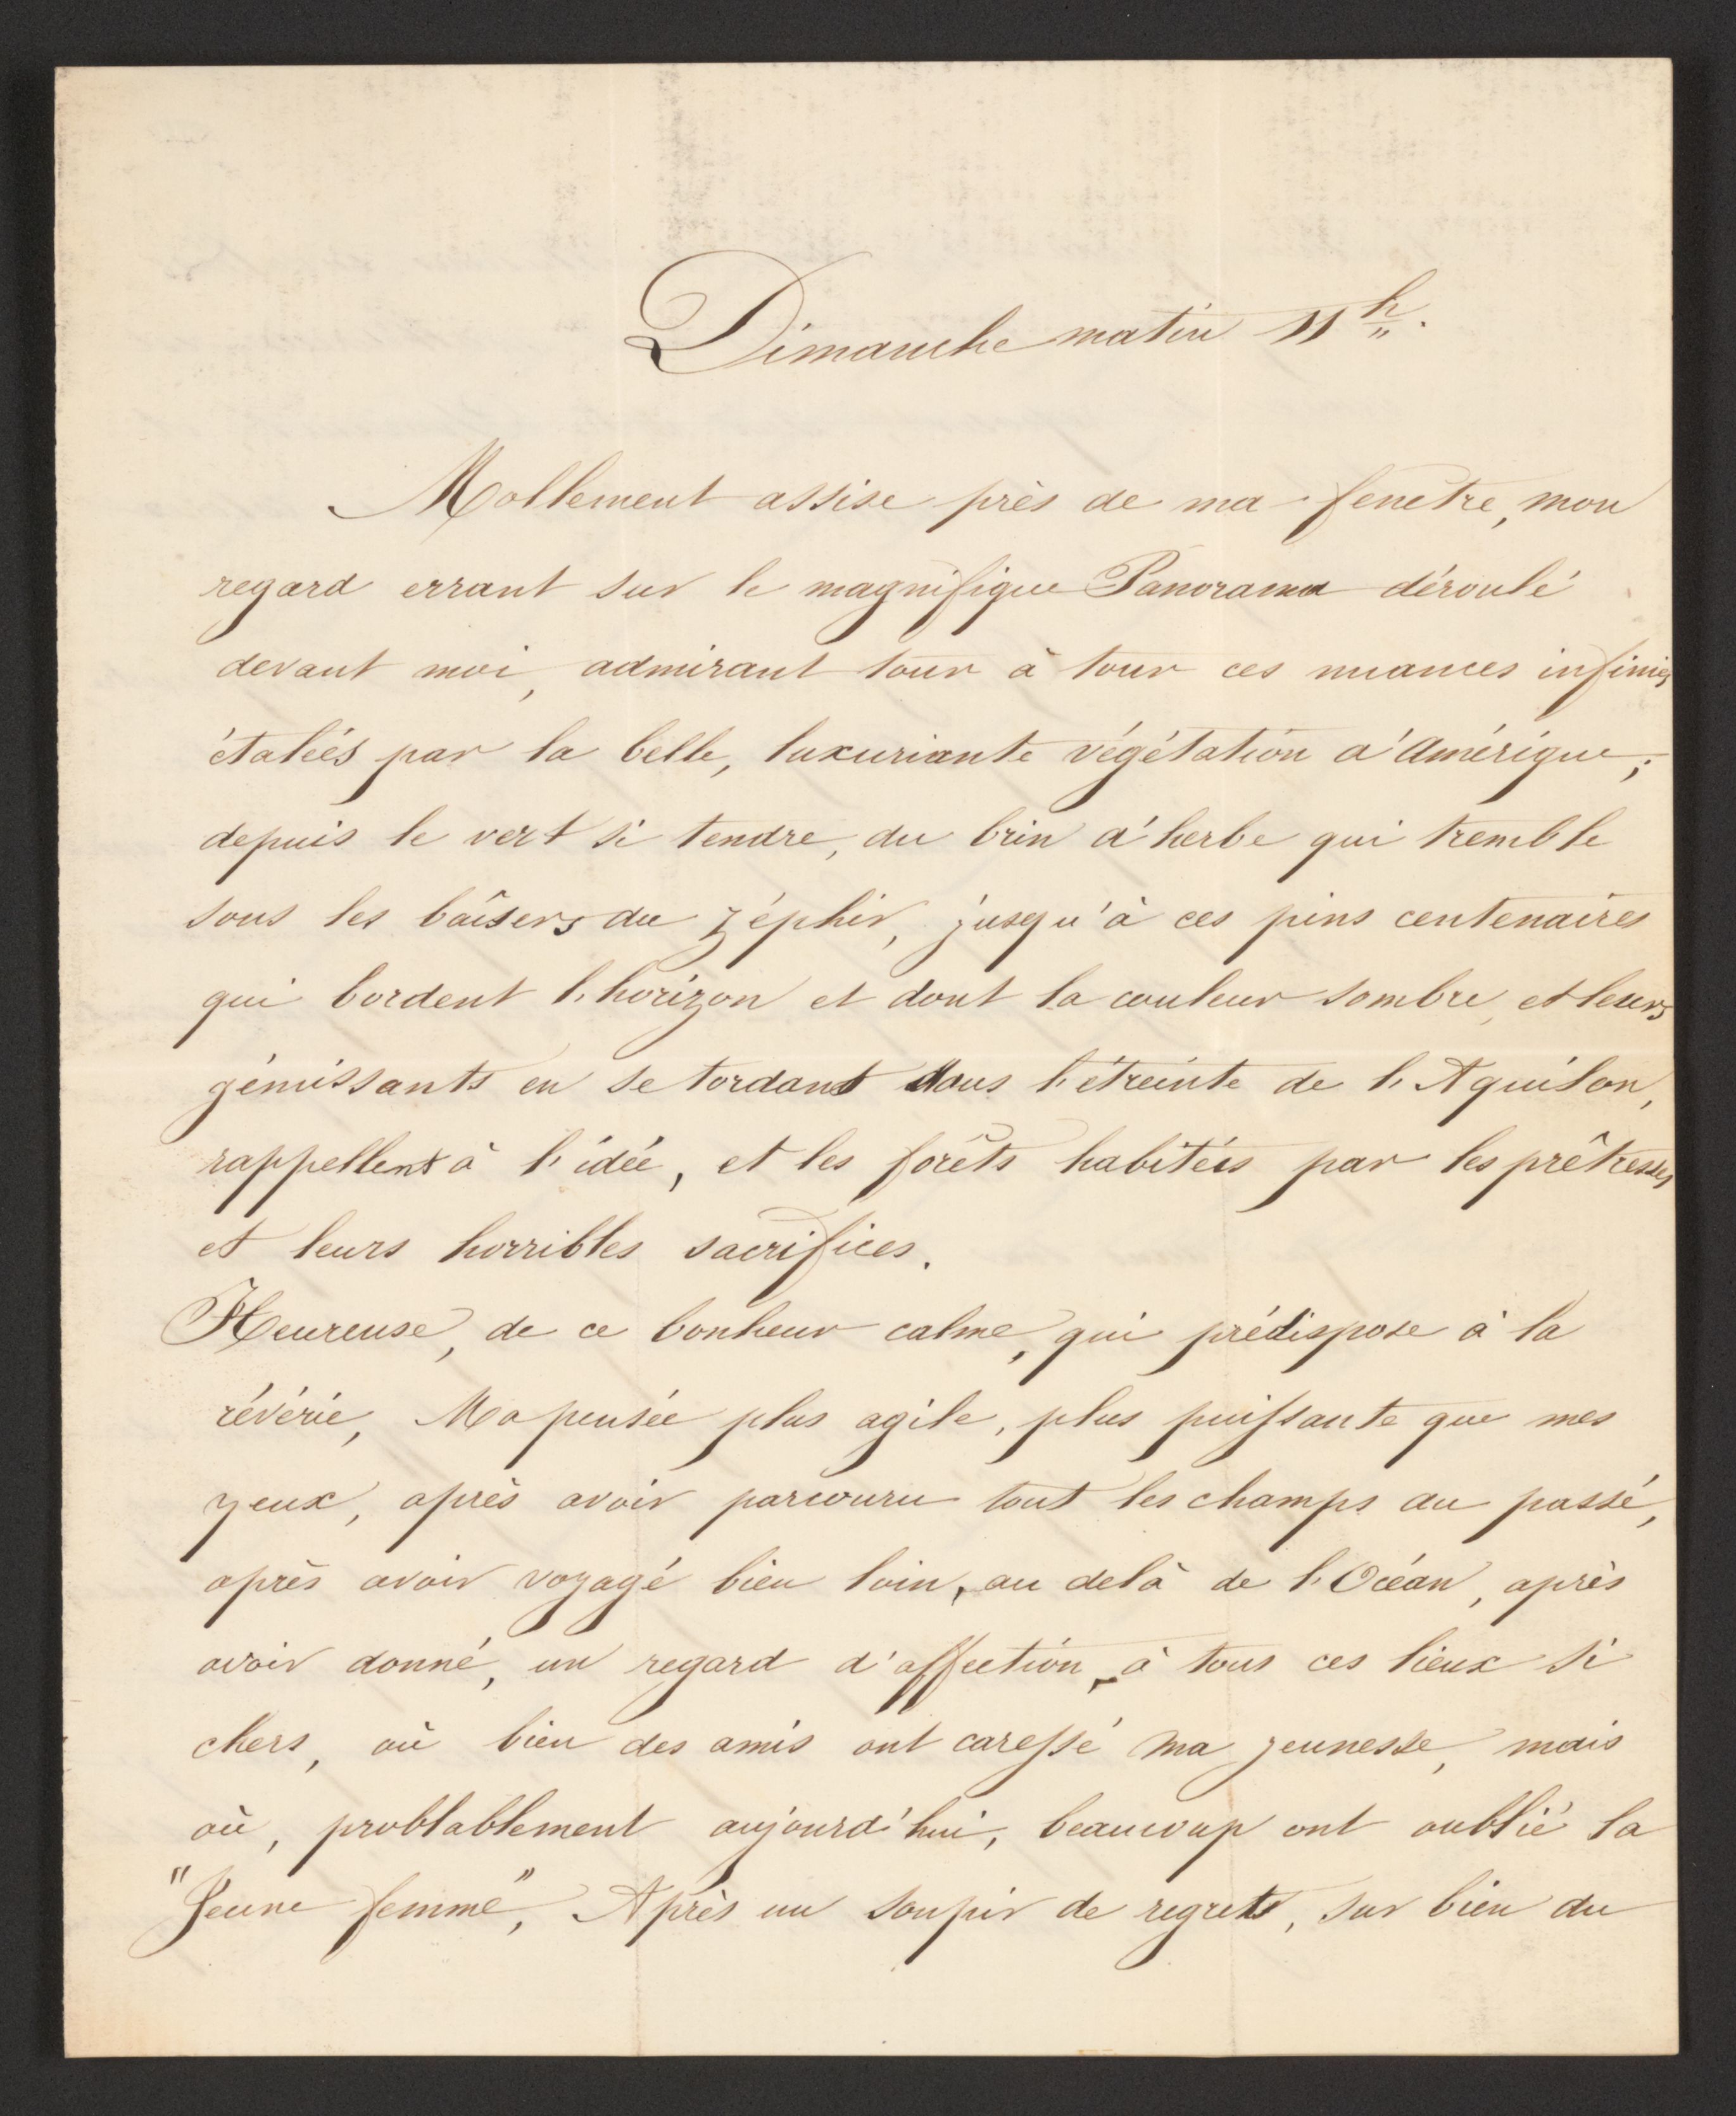 Dimanche matin 11h.
Mollement assise près de ma fenêtre, mon
regard errant sur le magnifique Panorama déroulé
devant moi, admirant tour à tour ces nuances infinies
étalées par la belle, luxuriante végétation d'Amérique;
depuis le vert si tendre, du brin d'herbe qui tremble
sous les baîsers du zéphir, jusqu'à ces pins centenaires
qui bordent l'horizon et dont la couleur sombre, et leurs
gémissants en se tordant dans l'étreinte de l'Aquilon,
rappellent à l'idée, et les forêts habitées par les prêtresses
et leurs horribles sacrifices.
Heureuse, de ce bonheur calme, qui prédispose à la
rêvérie, Ma pensée plus agile, plus puissante que mes
yeux, après avoir parcouru tout les champs du passé,
après avoir voyagé bien loin, au delà de l'Océan, après
avoir donné, un regard d'affection, à tous ces lieux si
chers, où bien des amis ont caressé ma jeunesse, mais
où, problablement aujourd'hui, beaucoup ont oublié la
"Jeune femme", Après un soupir de regrets, sur bien du